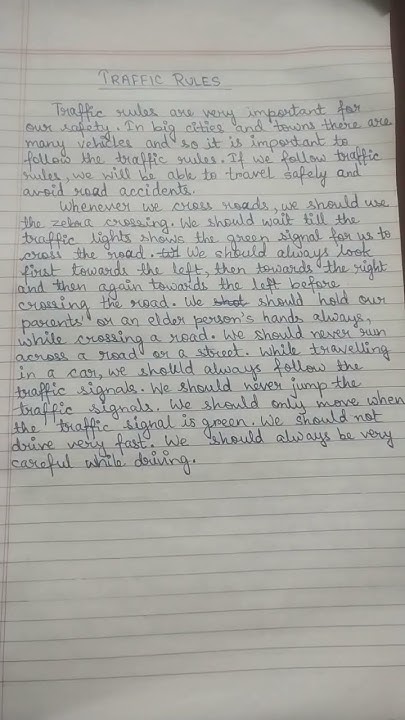 TRAFFIC RULES
Traffic rules are very important for
our safety. In big cities and towns there are
many vehicles and so it is important to
follow the traffic rules. If we follow traffic
rules, we will be able to travel safely and
avoid road accidents.
Whenever we cross roads, we should use
the zebra crossing. We should wait till the
traffic lights shows the green signal for us to
cross the road. We should always look
first towards the left, then towards the right
and then again towards the left before
crossing the road. We should hold our
parents' or an elder person's hands always,
while crossing a road. We should never run
across a road or a street. While travelling
in a car, we should always follow the
traffic signals. We should never jump the
traffic signals. We should only move when
the traffic signal is green. We should not
drive very fast. We should always be very
careful while driving.